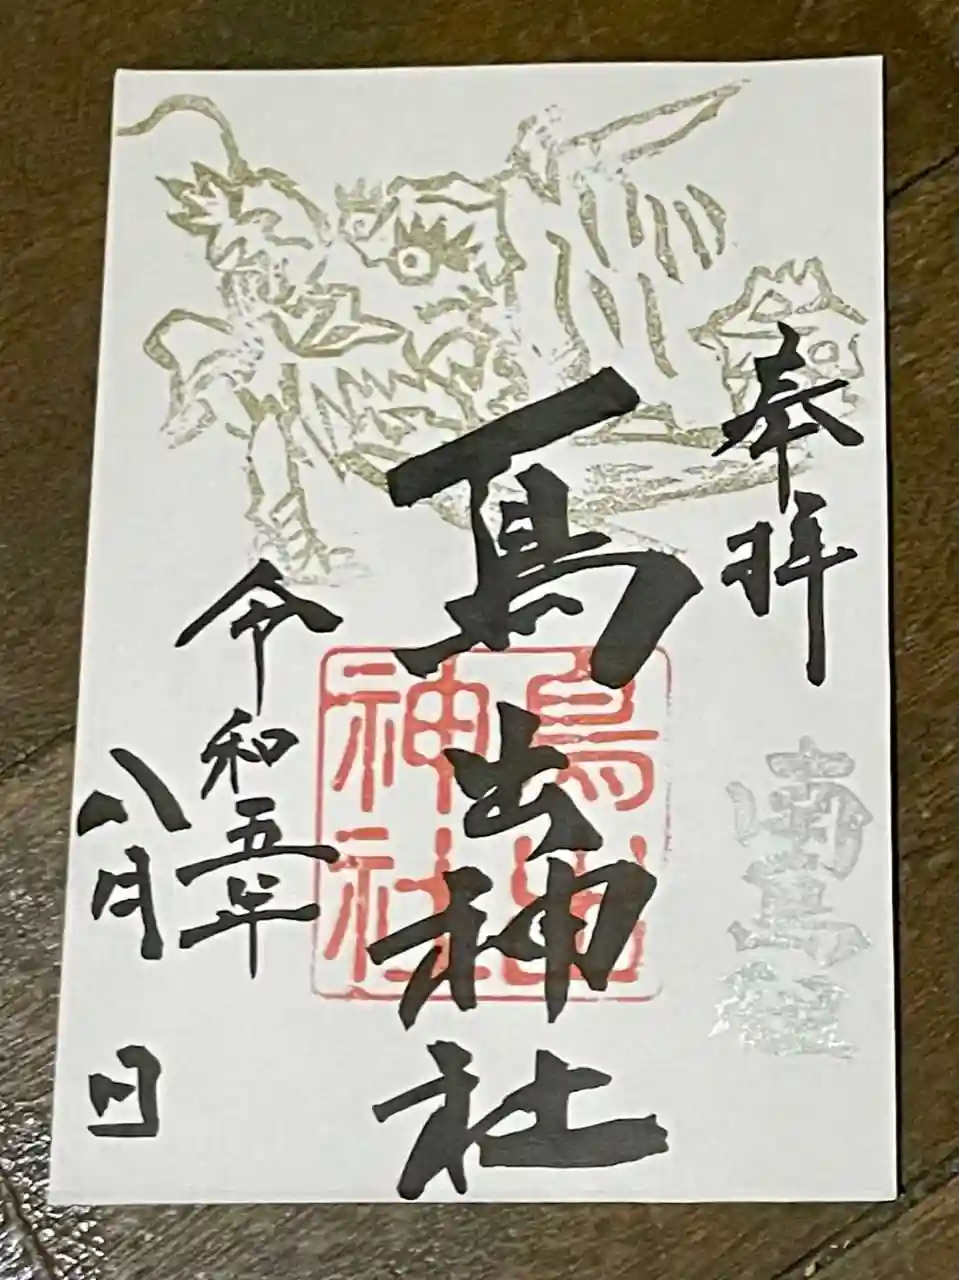 奉拝
南島組
鳥出神社
鳥出
神社
令和五年
八月 日